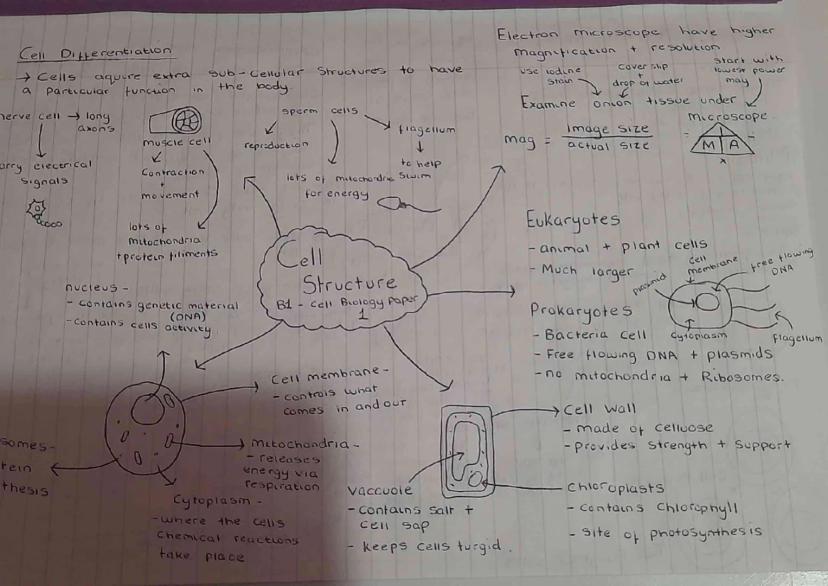 Cell Differentiation
→ Cells aquire extra sub-cellular structures to have
a particular function in the body.
nerve cell → long
axons
arry electrical
signals
muscle cell
contraction
+
movement
lots of
mitochondria
+ protein filiments
sperm cells
reproduction
lots of mitochondria
for energy
flagellum
to help
swim
Electron microscope have higher
magnification + resolution
use iodine
stain
cover slip
+
drop of water
start with
lowest power
may
Examine onion tissue under
microscope
mag = image size
actual size
I
M A
x
Cell
Structure
B1 - Cell Biology Paper
1
Eukaryotes
- animal + plant cells
- Much larger
Prokaryotes
- Bacteria cell
- Free flowing DNA + plasmids
- no mitochondria + Ribosomes.
plasmid
cell
membrane
free flowing
DNA
cytoplasm
flagellum
nucleus -
- contains genetic material
(DNA)
- contains cells activity
Cell membrane -
- controls what
comes in and our
mitochondria -
- releases
energy via
respiration
Cytoplasm -
- where the cells
chemical reactions
take place
somes -
tein
thesis
Cell wall
- made of celluose
- provides strength + support
chloroplasts
- contains chlorophyll
- site of photosynthesis
vaccuole
- contains salt +
cell sap
- keeps cells turgid.